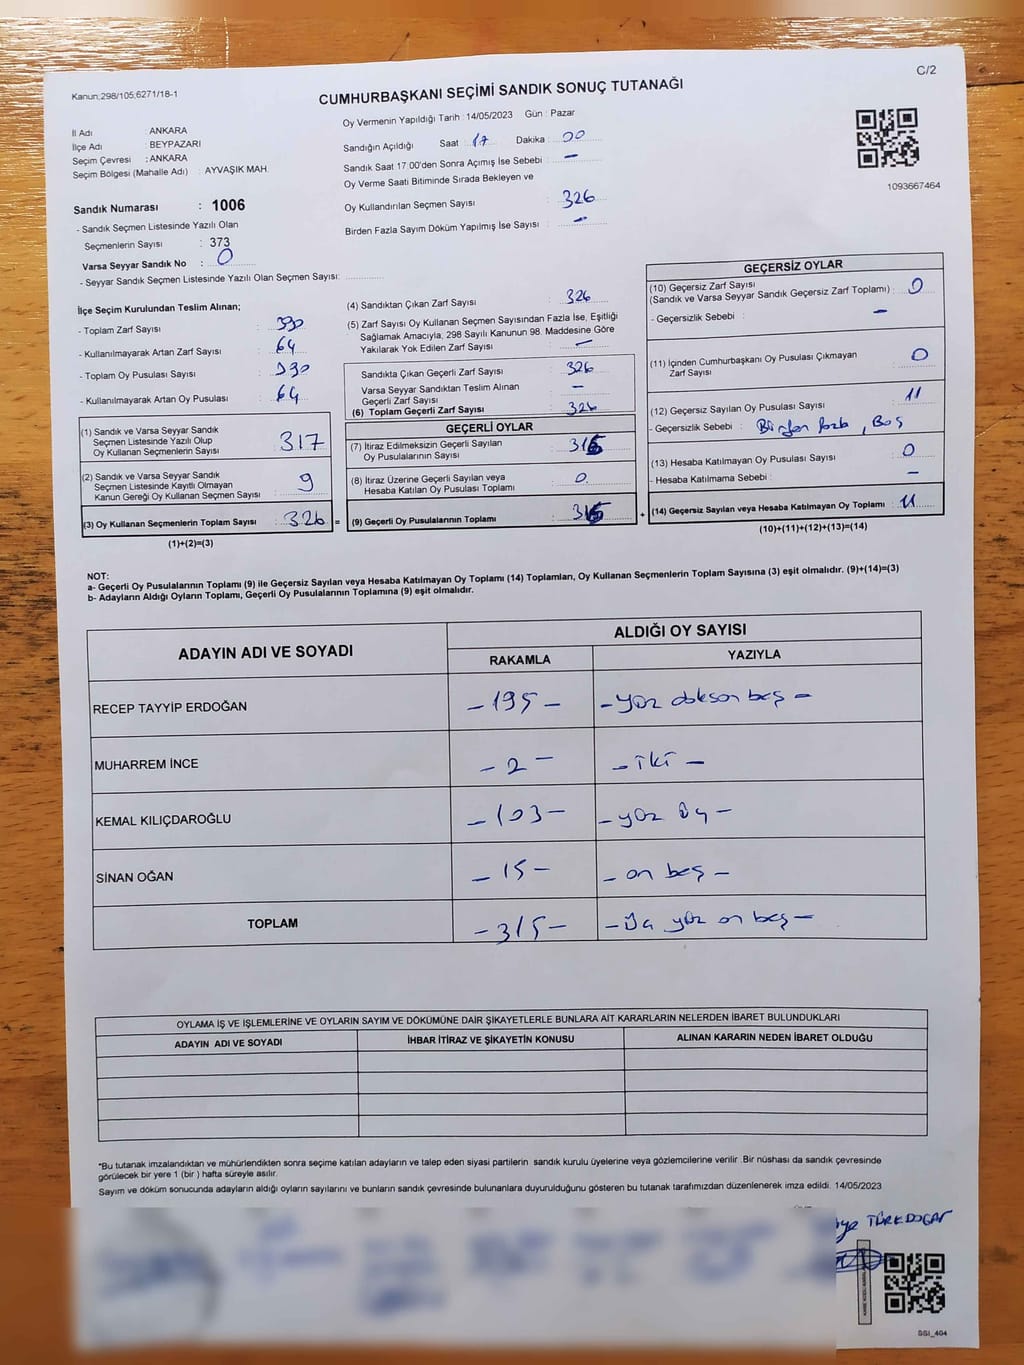 C/2
Kanun;298/105,6271/18-1
CUMHURBAŞKANI SEÇİMİ SANDIK SONUÇ TUTANAĞI
Oy Vermenin Yapıldığı Tarih : 14/05/2023 Gün : Pazar
İl Adı : ANKARA
İlçe Adı : BEYPAZARI
Seçim Çevresi : ANKARA
Seçim Bölgesi (Mahalle Adı) : AYVAŞIK MAH.
Sandığın Açıldığı Saat : 17 Dakika : 00
Sandık Saat 17.00'den Sonra Açımış İse Sebebi : —
Oy Verme Saati Bitiminde Sırada Bekleyen ve
Oy Kullandırılan Seçmen Sayısı : 326
Birden Fazla Sayım Döküm Yapılmış İse Sayısı : —
1093667464
Sandık Numarası : 1006
- Sandık Seçmen Listesinde Yazılı Olan
Seçmenlerin Sayısı : 373
Varsa Seyyar Sandık No : 0
- Seyyar Sandık Seçmen Listesinde Yazılı Olan Seçmen Sayısı:
İlçe Seçim Kurulundan Teslim Alınan;
- Toplam Zarf Sayısı : 390
- Kullanılmayarak Artan Zarf Sayısı : 64
- Toplam Oy Pusulası Sayısı : 390
- Kullanılmayarak Artan Oy Pusulası : 64
(1) Sandık ve Varsa Seyyar Sandık
Seçmen Listesinde Yazılı Olup
Oy Kullanan Seçmenlerin Sayısı : 317
(2) Sandık ve Varsa Seyyar Sandık
Seçmen Listesinde Kayıtlı Olmayan
Kanun Gereği Oy Kullanan Seçmen Sayısı : 9
(3) Oy Kullanan Seçmenlerin Toplam Sayısı : 326 =
(1)+(2)=(3)
(4) Sandıktan Çıkan Zarf Sayısı : 326
(5) Zarf Sayısı Oy Kullanan Seçmen Sayısından Fazla İse, Eşitliği
Sağlamak Amacıyla, 298 Sayılı Kanunun 98. Maddesine Göre
Yakılarak Yok Edilen Zarf Sayısı : —
Sandıkta Çıkan Geçerli Zarf Sayısı : 326
Varsa Seyyar Sandıktan Teslim Alınan
Geçerli Zarf Sayısı : —
(6) Toplam Geçerli Zarf Sayısı : 326
GEÇERLİ OYLAR
(7) İtiraz Edilmeksizin Geçerli Sayılan
Oy Pusulalarının Sayısı : 315
(8) İtiraz Üzerine Geçerli Sayılan veya
Hesaba Katılan Oy Pusulası Toplamı : 0
(9) Geçerli Oy Pusulalarının Toplamı : 315 +
GEÇERSİZ OYLAR
(10) Geçersiz Zarf Sayısı
(Sandık ve Varsa Seyyar Sandık Geçersiz Zarf Toplamı) : 0
- Geçersizlik Sebebi : —
(11) İçinden Cumhurbaşkanı Oy Pusulası Çıkmayan
Zarf Sayısı : 0
(12) Geçersiz Sayılan Oy Pusulası Sayısı : 11
- Geçersizlik Sebebi : Birden fazla, Boş
(13) Hesaba Katılmayan Oy Pusulası Sayısı : 0
- Hesaba Katılmama Sebebi : —
(14) Geçersiz Sayılan veya Hesaba Katılmayan Oy Toplamı : 11
(10)+(11)+(12)+(13)=(14)
NOT:
a- Geçerli Oy Pusulalarının Toplamı (9) ile Geçersiz Sayılan veya Hesaba Katılmayan Oy Toplamı (14) Toplamları, Oy Kullanan Seçmenlerin Toplam Sayısına (3) eşit olmalıdır. (9)+(14)=(3)
b- Adayların Aldığı Oyların Toplamı, Geçerli Oy Pusulalarının Toplamına (9) eşit olmalıdır.
ADAYIN ADI VE SOYADI ALDIĞI OY SAYISI
RAKAMLA YAZIYLA
RECEP TAYYİP ERDOĞAN -195- -yüz doksan beş-
MUHARREM İNCE -2- -iki-
KEMAL KILIÇDAROĞLU -103- -yüz üç-
SİNAN OĞAN -15- -on beş-
TOPLAM -315- -Üç yüz on beş-
OYLAMA İŞ VE İŞLEMLERİNE VE OYLARIN SAYIM VE DÖKÜMÜNE DAİR ŞİKAYETLERLE BUNLARA AİT KARARLARIN NELERDEN İBARET BULUNDUKLARI
ADAYIN ADI VE SOYADI İHBAR İTİRAZ VE ŞİKAYETİN KONUSU ALINAN KARARIN NEDEN İBARET OLDUĞU
*Bu tutanak imzalandıktan ve mühürlendikten sonra seçime katılan adayların ve talep eden siyasi partilerin sandık kurulu üyelerine veya gözlemcilerine verilir .Bir nüshası da sandık çevresinde
görülecek bir yere 1 (bir ) hafta süreyle asılır.
Sayım ve döküm sonucunda adayların aldığı oyların sayılarını ve bunların sandık çevresinde bulunanlara duyurulduğunu gösteren bu tutanak tarafımızdan düzenlenerek imza edildi. 14/05/2023
TÜRKDOGAN
SSI_404